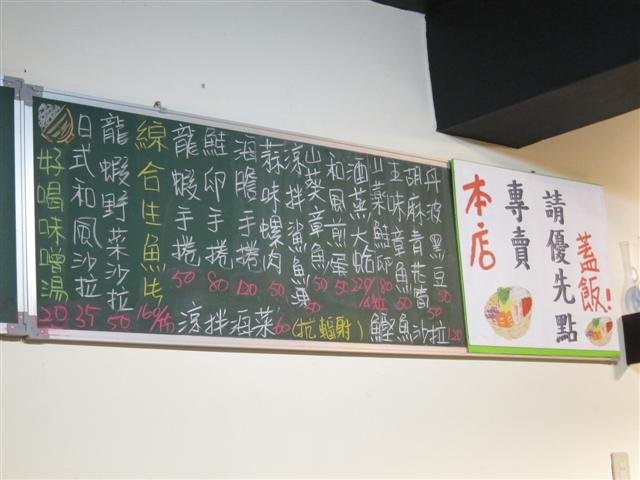 好喝味噌湯 20
日式和風沙拉 35
龍蝦野菜沙拉 50
綜合生魚片 160/份
龍蝦手捲 50
鮭卵手捲 80
海膽手捲 120
蒜味螺肉 50
涼拌鯊魚煙 50
山葵章魚 50
和風煎蛋 50
酒蒸大蛤 220
山藥鮭卵 80
五味章魚
胡麻青花筍 50
丹波黑豆 50
涼拌海菜 60 (抗輻射)
鰹魚沙拉 120
本店
專賣
蓋飯!
請優先點